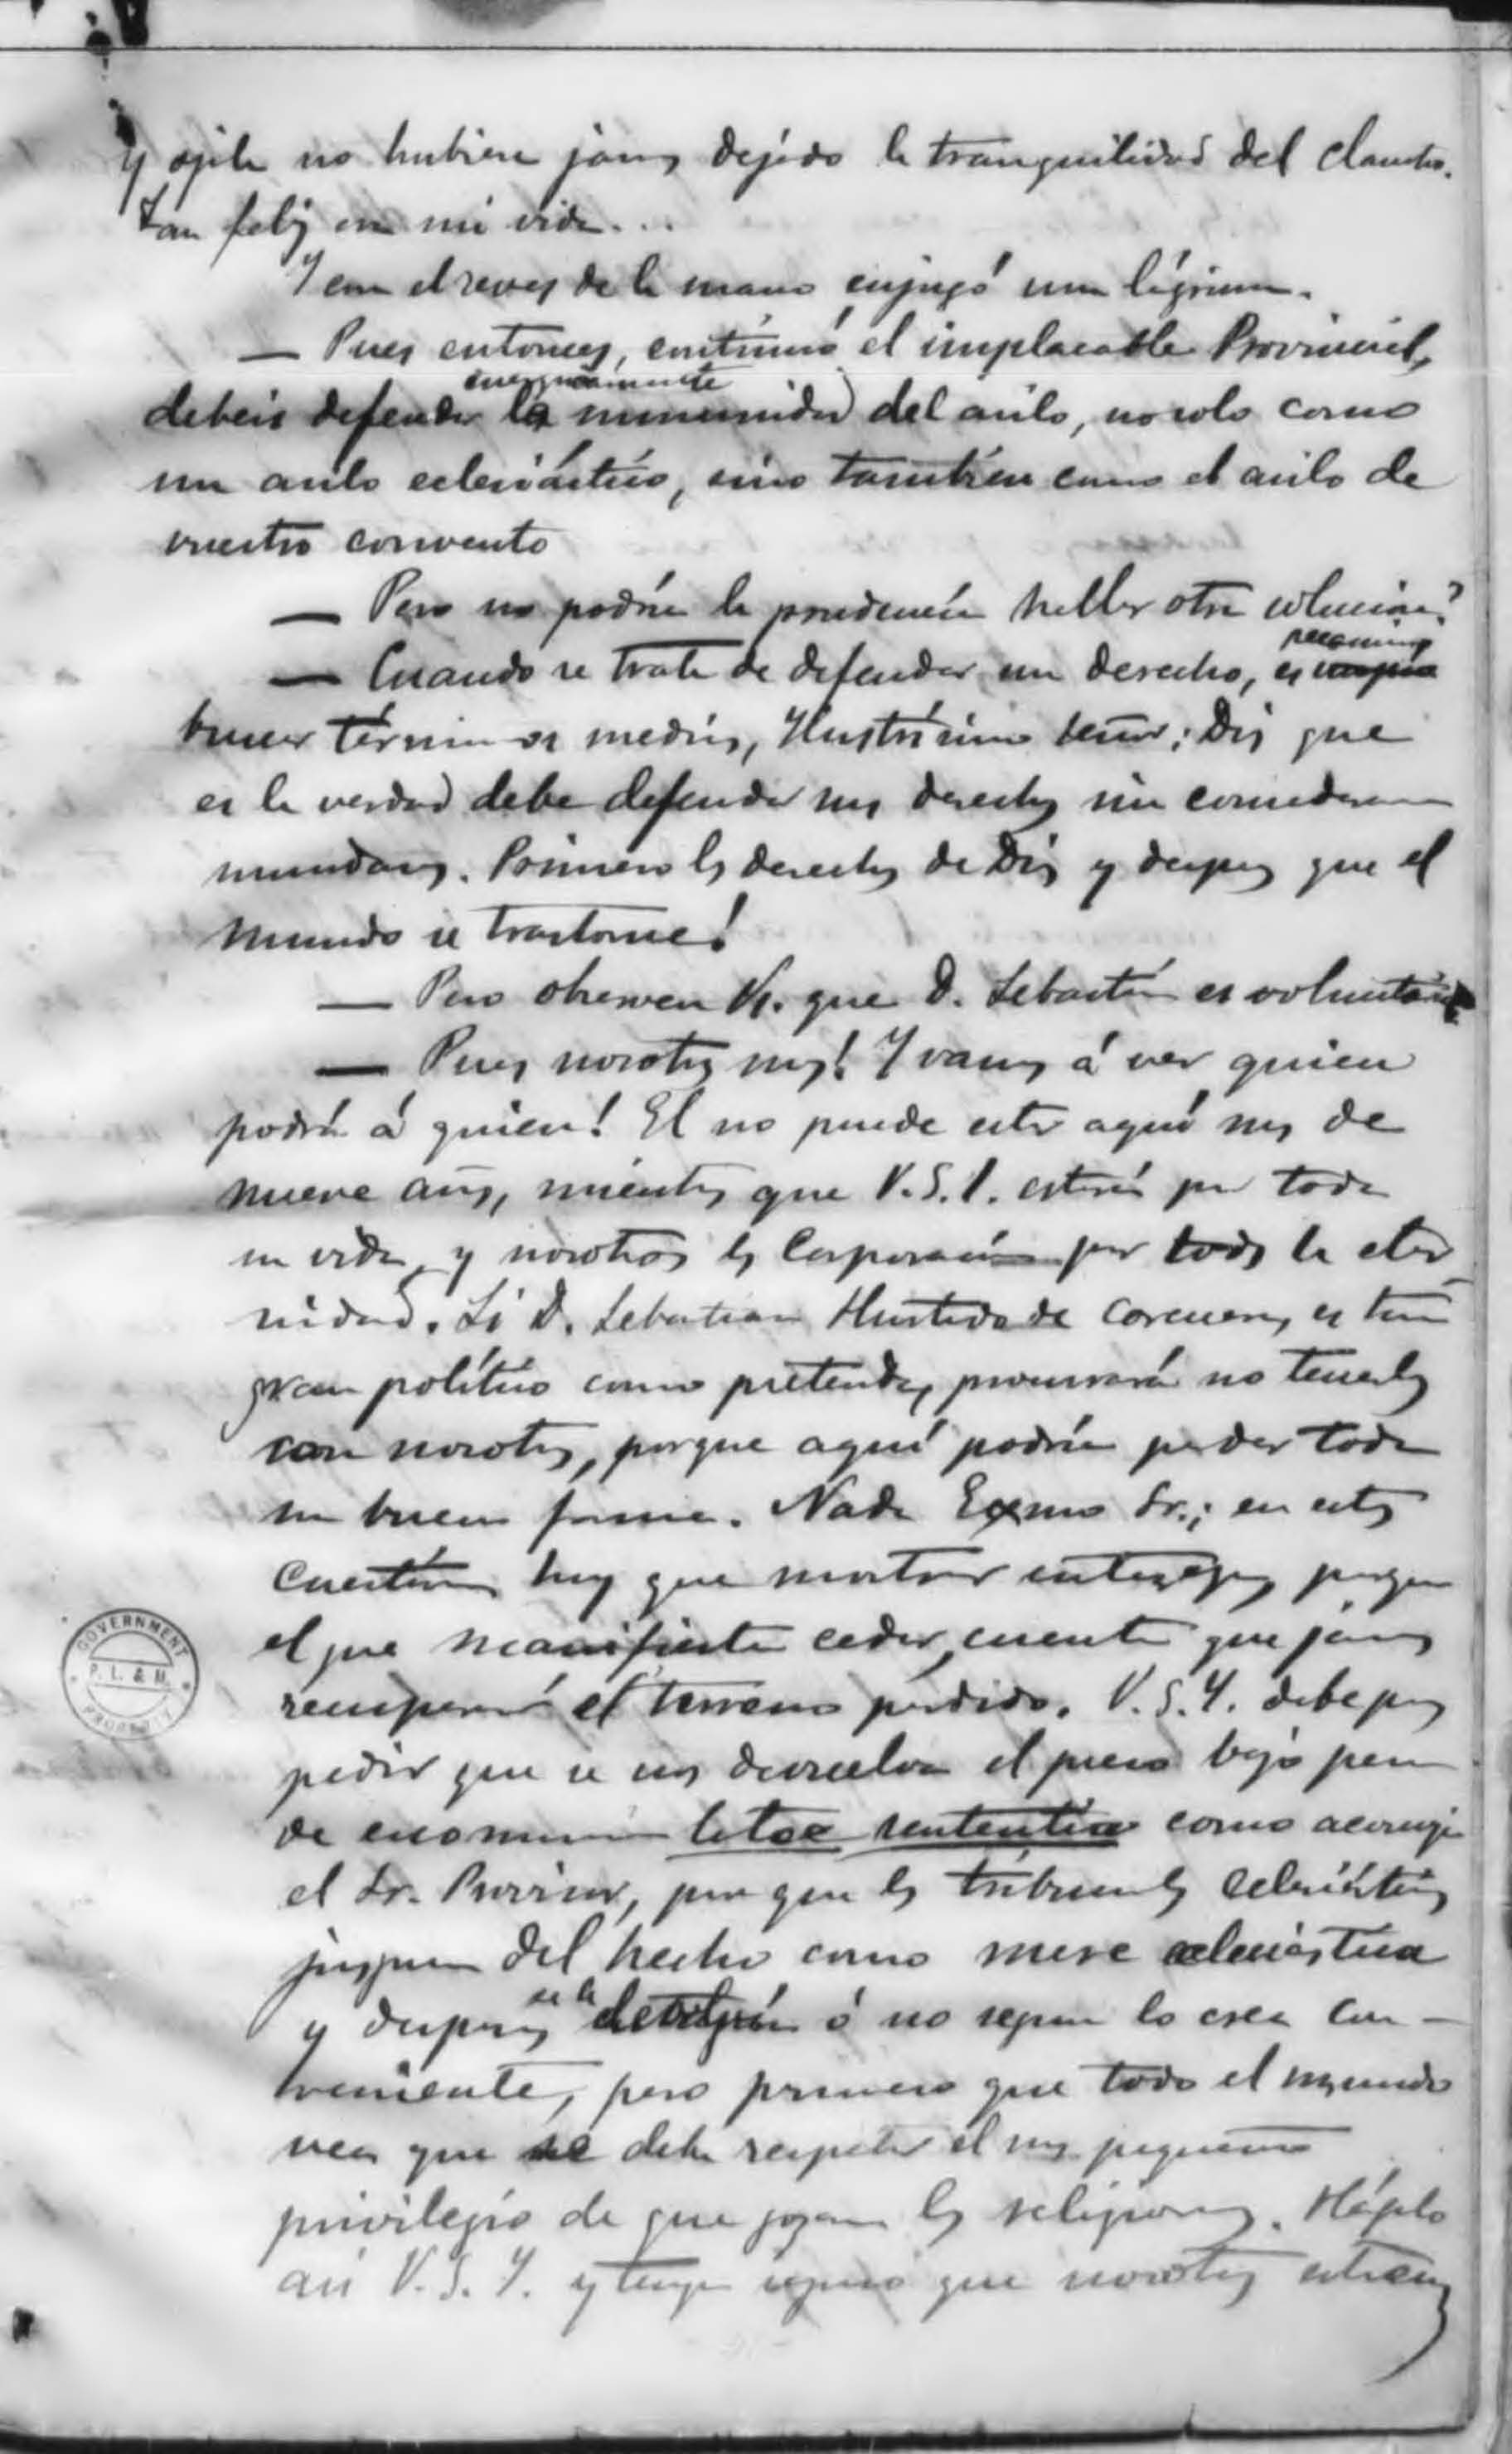 y ojala no hubiera jamas dejado la tranquilidad del claustro.
tan feliz en mi vida...
Y con el reves de la mano enjugó una lágrima.
— Pues entonces, continuó el implacable Provincial,
energicamente
debeis defender la inmunidad del asilo, no solo como
un asilo eclesiástico, sino tambien como el asilo de
vuestro convento
— Pero no podría la prudencia hallar otra solucion?
pecaminoso
— Cuando se trata de defender un derecho, es
buscar términos medios, Ilustrísimo señor; Dios que
es la verdad debe defender sus derechos sin consideraciones
mundanas. Primero los derechos de Dios y despues que el
mundo se trastorne!
— Pero observen Vs. que D. Sebastián es voluntarioso
— Pues nosotros mas! Y vamos á ver quien
podrá á quien! El no puede estar aquí mas de
nueve años, mientras que V.S.I. estará por toda
su vida, y nosotros las Corporaciones por toda la eter
nidad. Si D. Sebastian Hurtado de Corcuera, es tan
gran político como pretende, procurará no tenerlas
con nosotros, porque aquí podría perder toda
su buena fama. Nada Exmo Sr.; en estas
cuestiones hay que mostrar entereza, porque
el que manifiesta ceder, cuente que jamas
recuperará el terreno perdido. V.S.Y. debe pues
pedir que se nos devuelva el preso bajo pena
de excomunion latae sententiae como aconseja
el Sr. Provisor, para que los tribunales eclesiásticos
juzguen del hecho como mere eclesiástica
se le
y despues ó no segun lo crea con-
veniente, pero primero que todo el mundo
vea que se debe respetar el mas pequeño
privilegio de que gozan las religiones. Hágalo
asi V.S.Y. y tenga seguro que nosotros estaremos
GOVERNMENT
P. L. & M.
PROPERTY